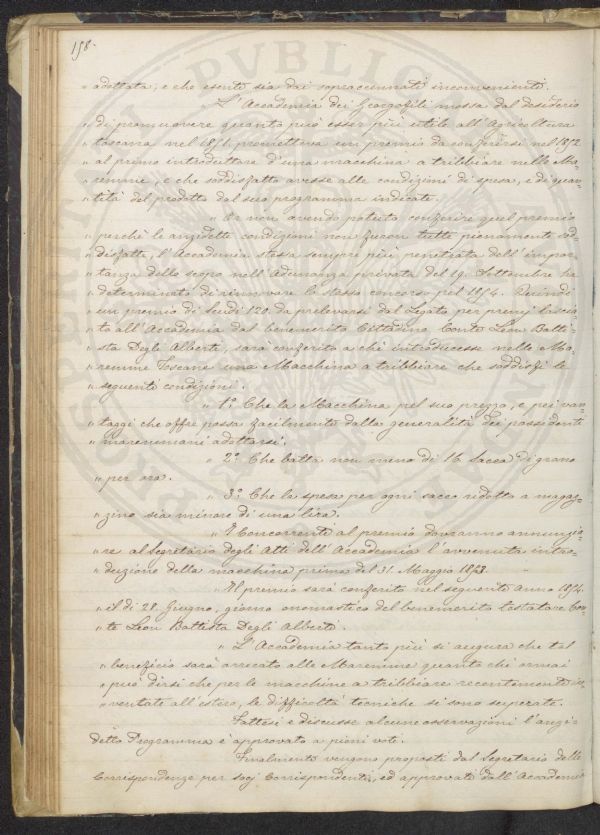 158.
" adottata, e che esente sia dai sopraccennati inconvenienti.
" L'Accademia dei Georgofili mossa dal desiderio
" di promuovere quanto può esser più utile all'Agricoltura
" toscana nel 1851. prometteva un premio da conferirsi nel 1852
" al primo introduttore d'una macchina a tribbiare nelle Ma=
" remme, e che soddisfatto avesse alle condizioni di spesa, e di quan=
" tità del prodotto dal suo programma indicate.
" E non avendo potuto conferire quel premio
" perchè le anzidette condizioni non furon tutte pienamente sod=
" disfatte, l'Accademia stessa sempre più penetrata dell'impor=
" tanza dello scopo nell'Adunanza privata del 19. Settembre ha
" determinato di rinnovare lo stesso concorso pel 1854. Quindi
" un premio di Scudi 120. da prelevarsi dal Legato per premj lascia=
" to all'Accademia dal benemerito Cittadino Conte Leon Batti=
" sta Degli Alberti, sarà conferito a chi introducesse nelle Ma=
" remme Toscane una Macchina a tribbiare che soddisfi le
" seguenti condizioni.
" 1.° Che la Macchina pel suo prezzo, e pei van=
" taggi che offre possa facilmente dalla generalità dei possidenti
" maremmani adottarsi.
" 2.° Che batta non meno di 16 sacca di grano
" per ora.
" 3.° Che la spesa per ogni sacco ridotto a magaz=
" zino sia minore di una lira.
" I Concorrenti al premio dovranno annunzia=
" re al Segretario degli Atti dell'Accademia l'avvenuta intro=
" duzione della macchina prima del 31. Maggio 1853.
" Il premio sarà conferito nel seguente anno 1854.
" il dì 28. Giugno, giorno onomastico del benemerito testatore Con=
" te Leon Battista Degli Alberti.
" L'Accademia tanto più si augura che tal
" benefizio sarà arrecato alle Maremme quanto chè ormai
" può dirsi che per le macchine a tribbiare recentemente in=
" ventate all'estero, le difficoltà tecniche si sono superate.
Fattesi e discusse alcune osservazioni l'anzi=
detto Programma è approvato a pieni voti.
Finalmente vengono proposti dal Segretario delle
Corrispondenze per socj Corrispondenti, ed approvati dall'Accademia